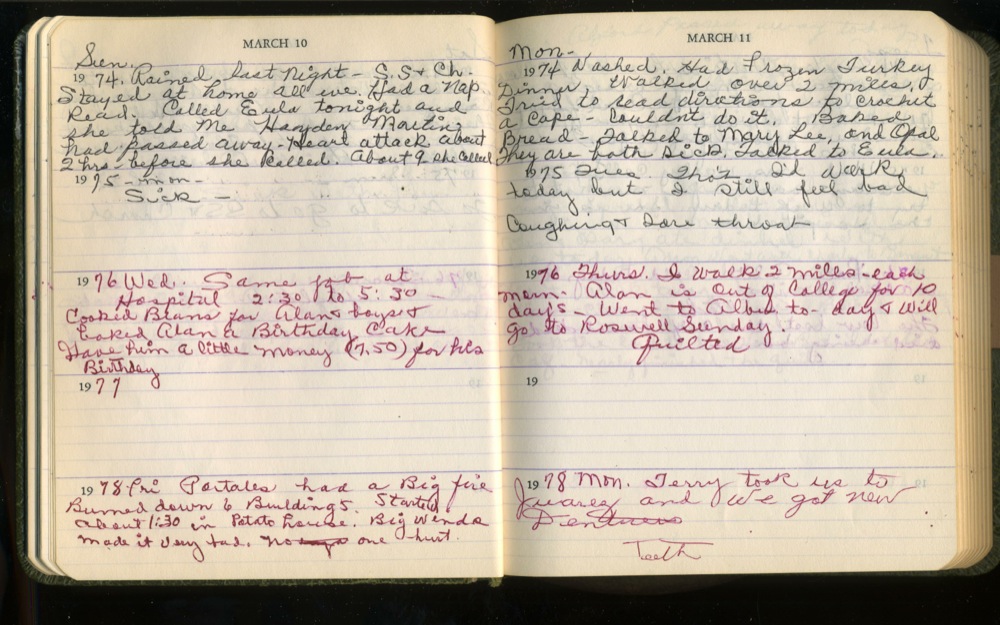 MARCH 10
Sun.
1974. Rained last Night - S.S & Ch.
Stayed at home all eve. Had a Nap
Read. Called Eula tonight and
she told me Hayden Martin
had passed away - Heart attack about
2 hrs - before she called. About 9 she called
1975 - Mon -
Sick -
1976 Wed. Same job at
Hospital 2:30 to 5:30 -
Cooked Beans for Alan & boys &
baked Alan a Birthday Cake
Gave him a little money (7.50) for his
Birthday
1977
1978 Fri Portales had a Big fire
Burned down 6 Buildings. Started
about 1:30 in Potato house. Big Winds
made it very bad. No one hurt.
MARCH 11
Mon-
1974 Washed. Had Frozen Turkey
Dinner, Walked over 2 miles,
Tried to read directions to crochet
a Cape - Couldnt do it. Baked
Bread - Talked to Mary Lee, and Opal
They are both Sick. Talked to Eula.
1975 Tues Tho't I'd Work
today but I still feel bad
Coughing & Sore throat
1976 Thurs. I walk 2 miles each
morn. Alan is Out of College for 10
days - Went to Albu to-day & Will
go to Roswell Sunday.
Quilted
19
1978 Mon. Terry took us to
Juarez and We got new
Dentures
Teeth